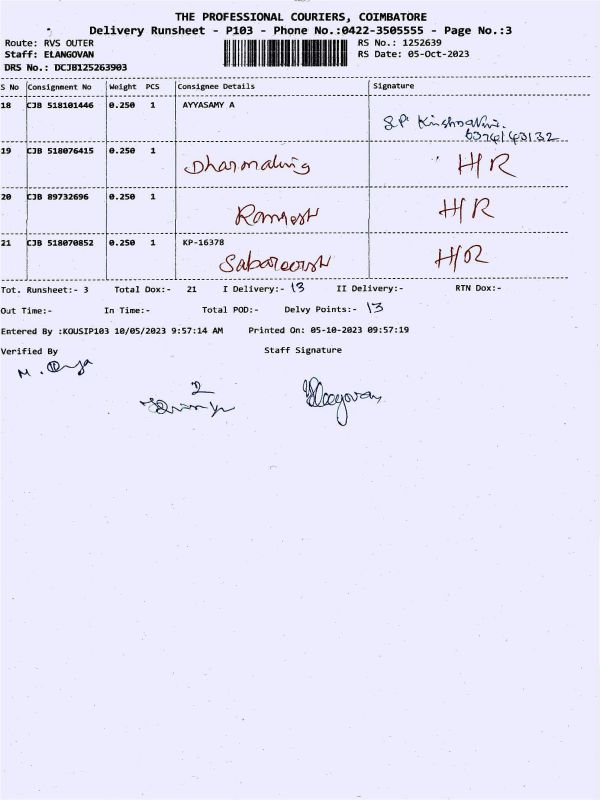 THE PROFESSIONAL COURIERS, COIMBATORE
Delivery Runsheet - P103 - Phone No.:0422-3505555 - Page No.:3
Route: RVS OUTER RS No.: 1252639
Staff: ELANGOVAN RS Date: 05-Oct-2023
DRS No.: DCJB125263903
S No Consignment No Weight PCS Consignee Details Signature
18 CJB 518101446 0.250 1 AYYASAMY A
S.P.
19 CJB 518076415 0.250 1
Dharmaling H/R
20 CJB 89732696 0.250 1
Ramesh H/R
21 CJB 518070852 0.250 1 KP-16378
Sabareesh H/R
Tot. Runsheet:- 3 Total Dox:- 21 I Delivery:- 13 II Delivery:- RTN Dox:-
Out Time:- In Time:- Total POD:- Delvy Points:- 13
Entered By :KOUSIP103 10/05/2023 9:57:14 AM Printed On: 05-10-2023 09:57:19
Verified By Staff Signature
M.
Elangovan